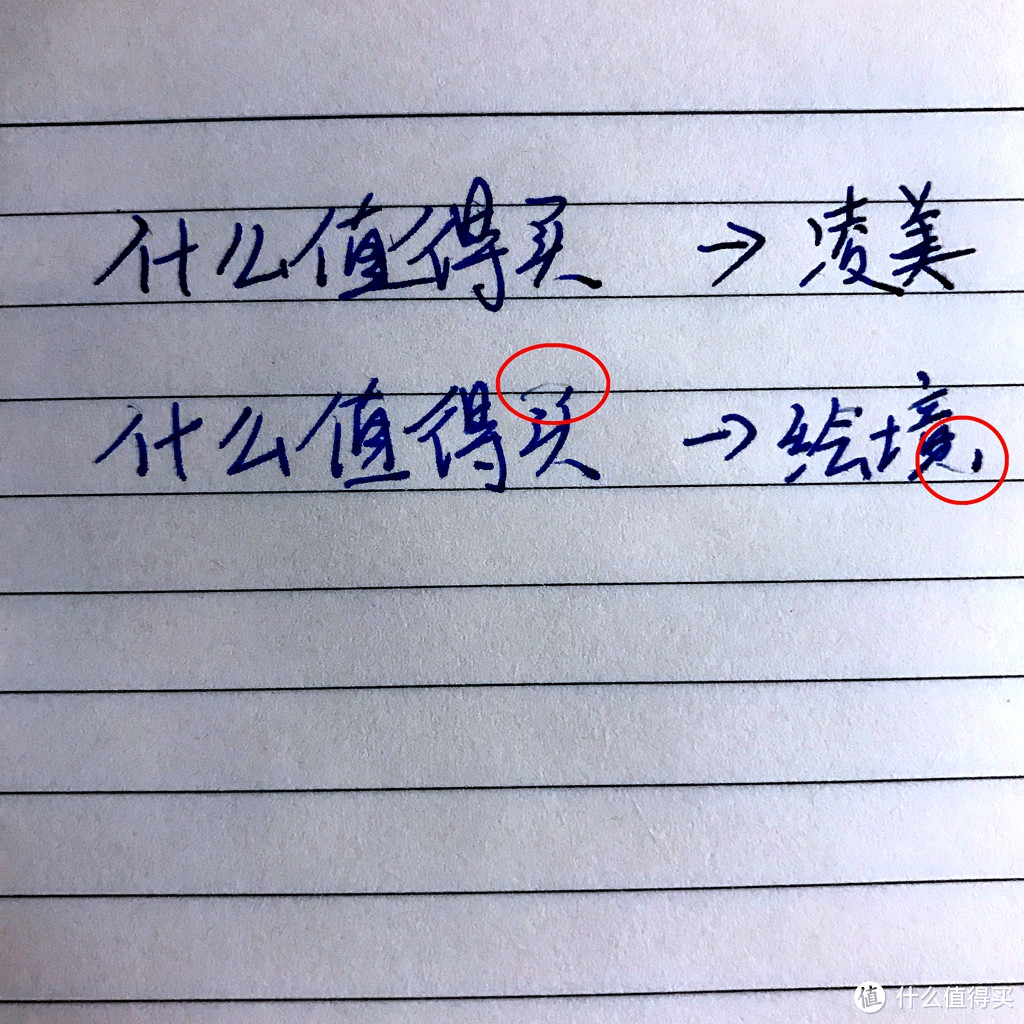 什么值得买 → 凌美
什么值得买 → 绘境
值 什么值得买